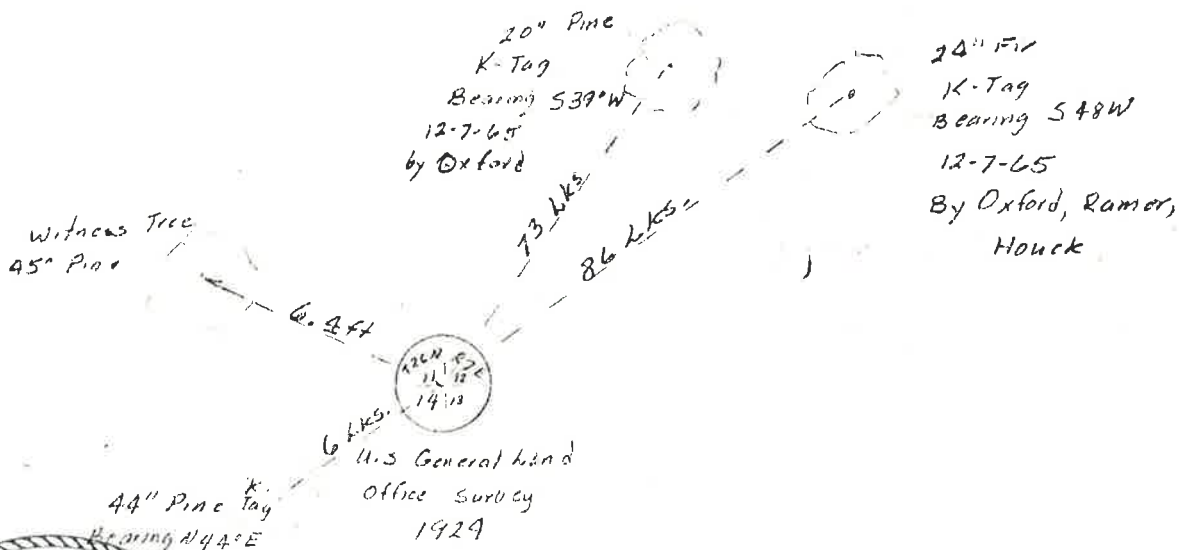 20" Pine
K-Tag
Bearing S39°W
12-7-65
by Oxford
24" Fir
K-Tag
Bearing S48W
12-7-65
By Oxford, Ramer,
Houck
73 Lks
86 Lks.
Witness Tree
45" Pine
6.4 ft
T26N R7E
11 12
14 13
6 Lks.
U.S General Land
Office Survey
1924
44" Pine K. Tag
Bearing N44°E